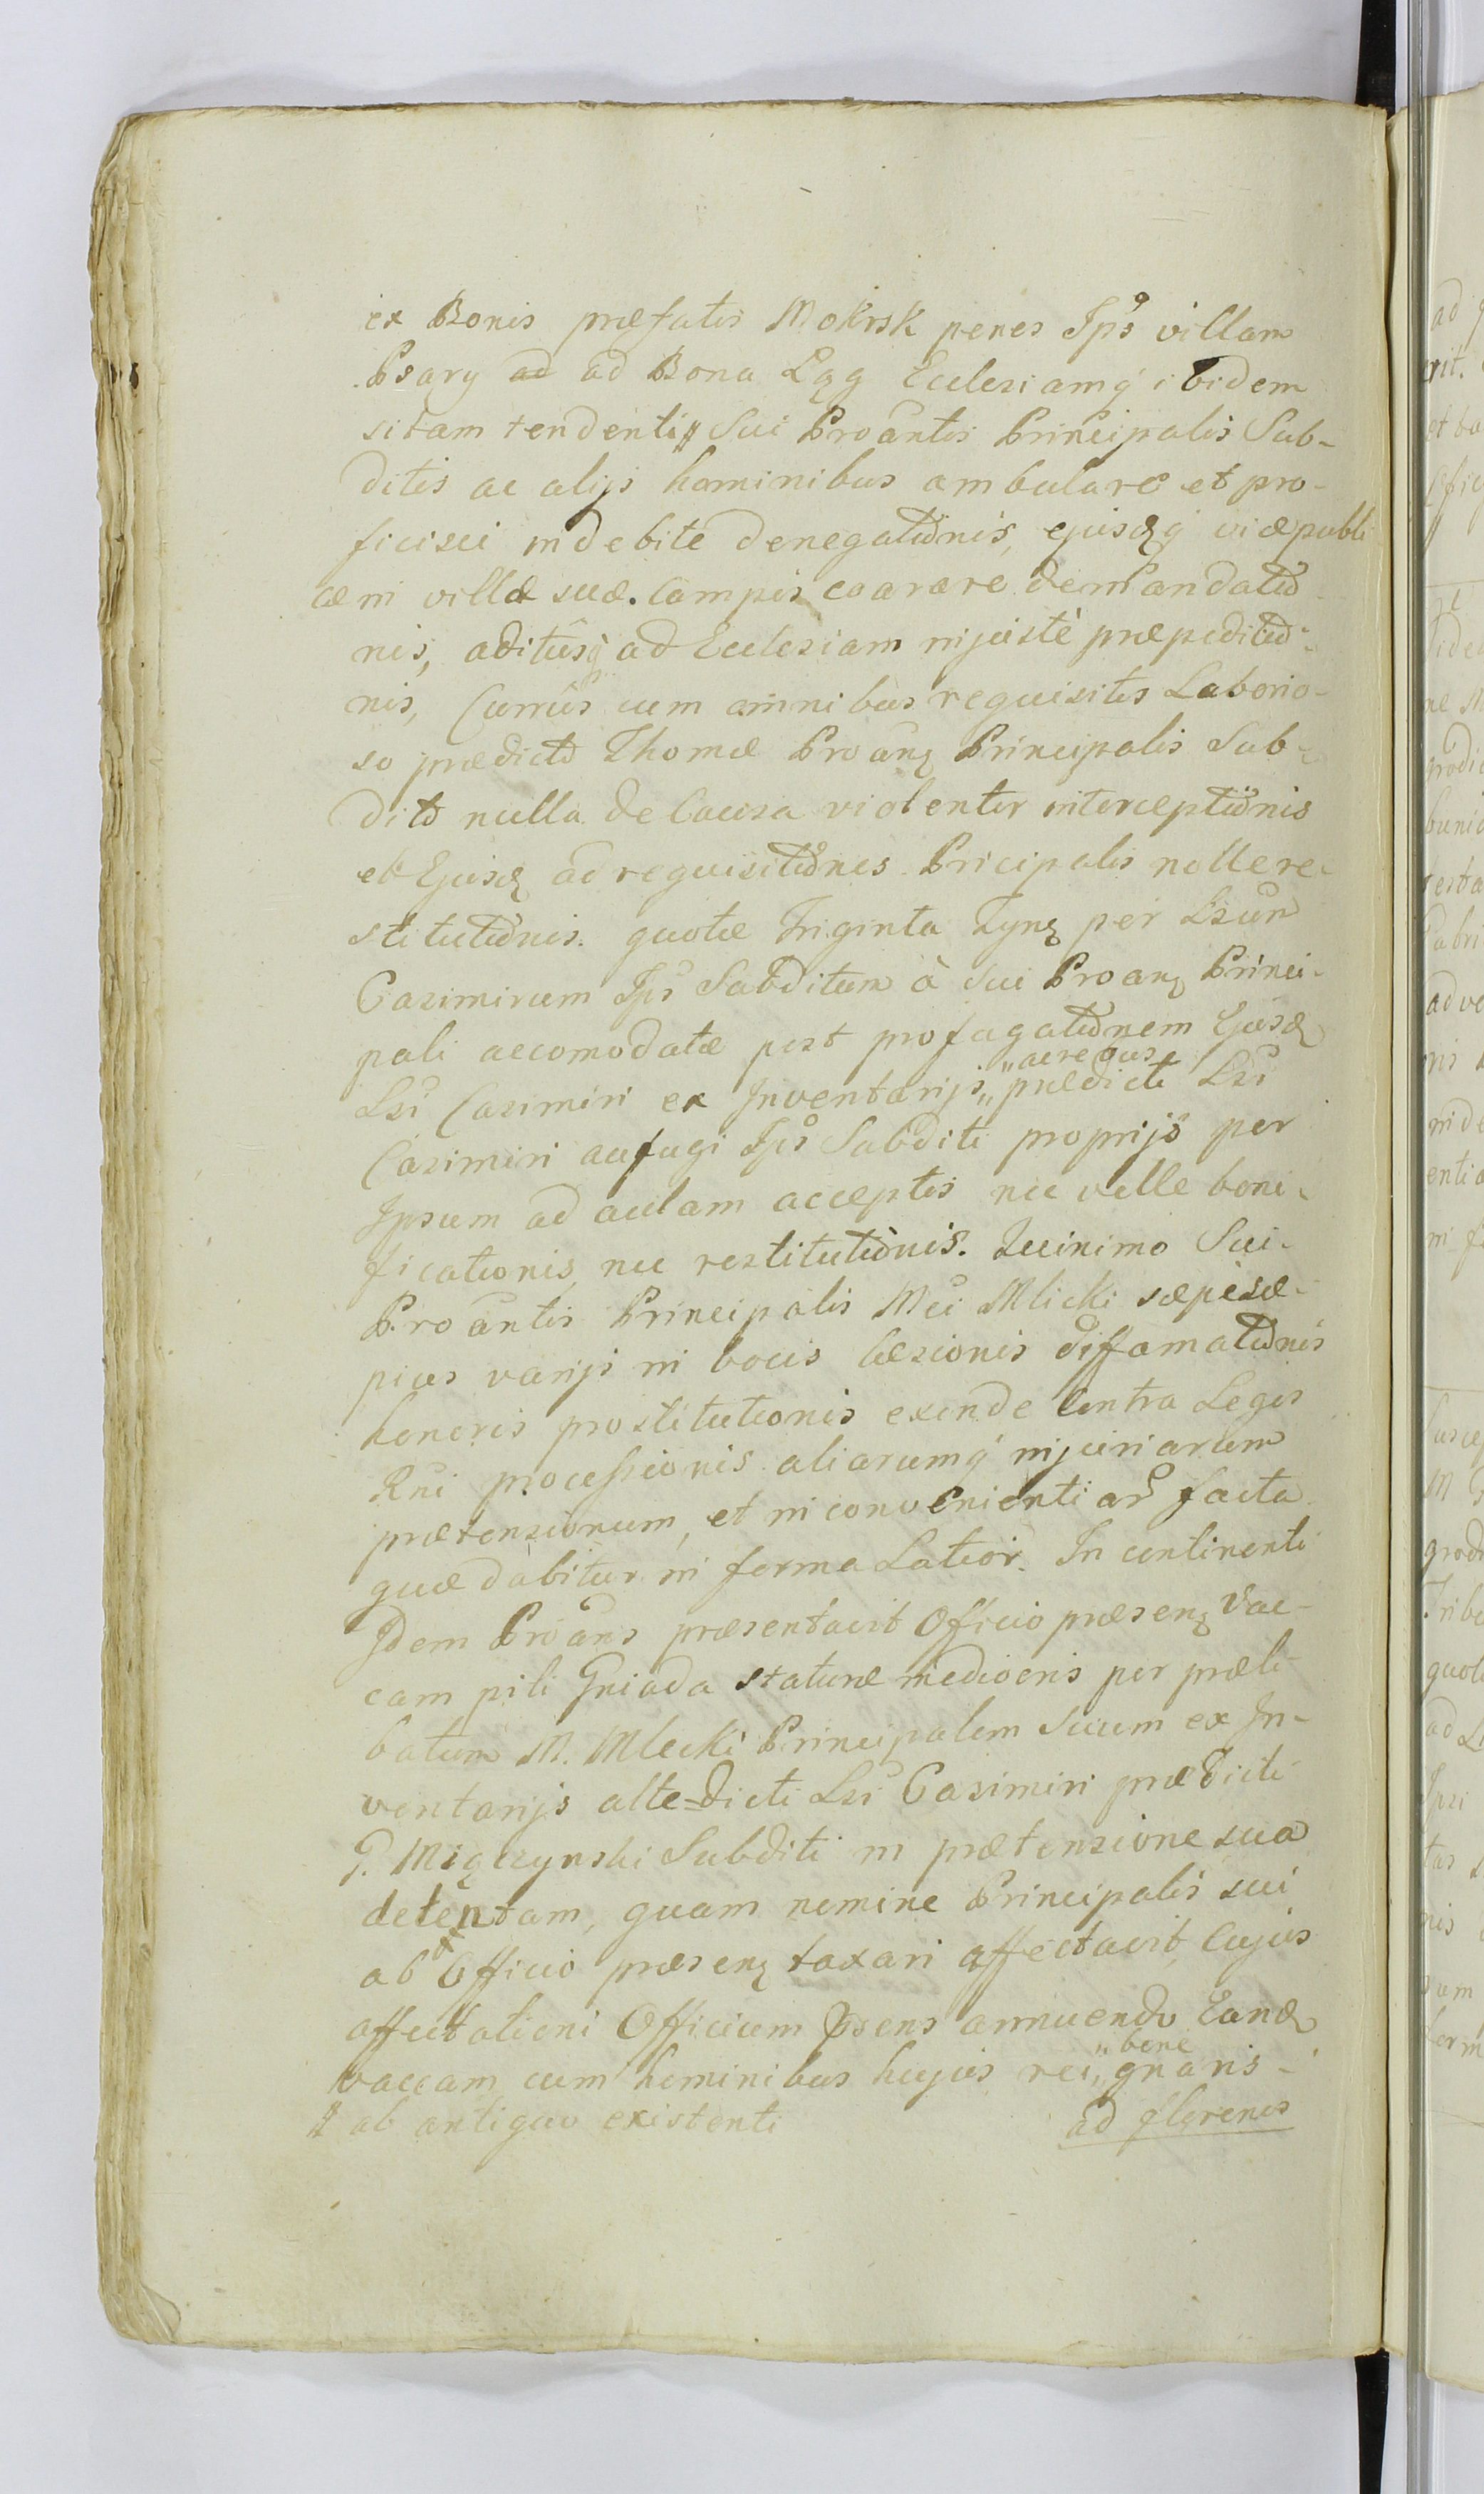 ex Bonis præfatis Mokrsk penes Ips̄ villam
Psary ad ad Bona Łąg Ecclesiamq́ ibidem
sitam tendenti〃 Sui Proāntis Principalis Sub-
ditis ac alijs hominibus ambulare et pro-
ficisci indebite denegatiōnis, ejusdq́ viæ publi
cæ in villæ suæ. Campis coarare demandatiō-
nis, aditûsq́ ad Ecclesiam injustè præpeditiō-
nis, Currûs cum omnibus requisitis Laborio-
so prædictō Thomæ Proanʒ Principalis Sub-
ditō nulla de Causa violenter interceptiōnis
et Ejusdʒ ad requisitiōnes Pricipalis nolle re-
stitutiōnis. quotæ Triginta Tynʒ per Lsūm
Casimirum Ips̄ Subditum à sui Proanʒ Princi-
pali accomodatæ post profugatiōnem Ejusdʒ
Lsī Casimiri ex Inventarijs „ac rebus„ prædicti Lsī
Casimiri aufugi Ips̄ Subditi proprijs per
Ipsum ad aulam acceptis nec velle boni-
ficationis, nec restitutiōnis. Quinimo Sui
Proāntis Principalis Mcī Mlicki sæpisæ-
pius varijs in locis læsionis diffamatiōnis
honoris prostitutionis exinde Contra Leges
Rnī processionis aliarumq́ injuriarum
prætensionum, et inconvenientiar̄ facta
quæ dabitur in forma Latior. In continenti
Idem Proāns præsentavit Officio præsenʒ Vac-
cam pili Gniada staturæ mediocris per præli-
batum M. Mlecki Principalem Suum ex In-
ventarijs alte=dicti Lsī Casimiri prædicti
G. Miączynski Subditi in prætensione sua
detentam, quam nomine Principalis sui
ab Officio præsenʒ taxari affectavit, Cujus
affectationi Officium Psens annuendo Eandʒ
vaccam cum hominibus hujus rei „bene„ gnaris
〃 ab antiquo existenti
ad florenos